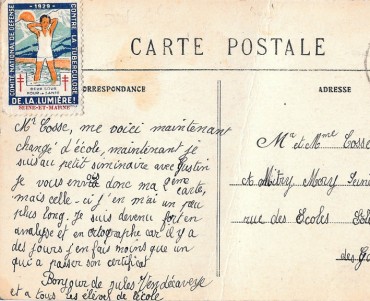 1929
COMITÉ NATIONAL DE DÉFENSE
CONTRE LA TUBERCULOSE
DEUX SOUS
POUR LA SANTÉ
DE LA LUMIÈRE!
SEINE-ET-MARNE
CARTE POSTALE
CORRESPONDANCE
ADRESSE
Mr Cosse, me voici maintenant
changé d'école, maintenant je
suis au petit siminaire avec Justin
je vous envoie donc ma 2ème carte,
mais celle-ci j'en mai un peu
plus long. Je suis devenu fort en
analyse et en ortographe car il y a
des jours j'en fais moins que un
qui a passer son certificat
Bonjour de jules
et a tous les élèves de l'école
Mr et Mme Cosse
A Mitry Mory Seine
rue des Ecoles
des